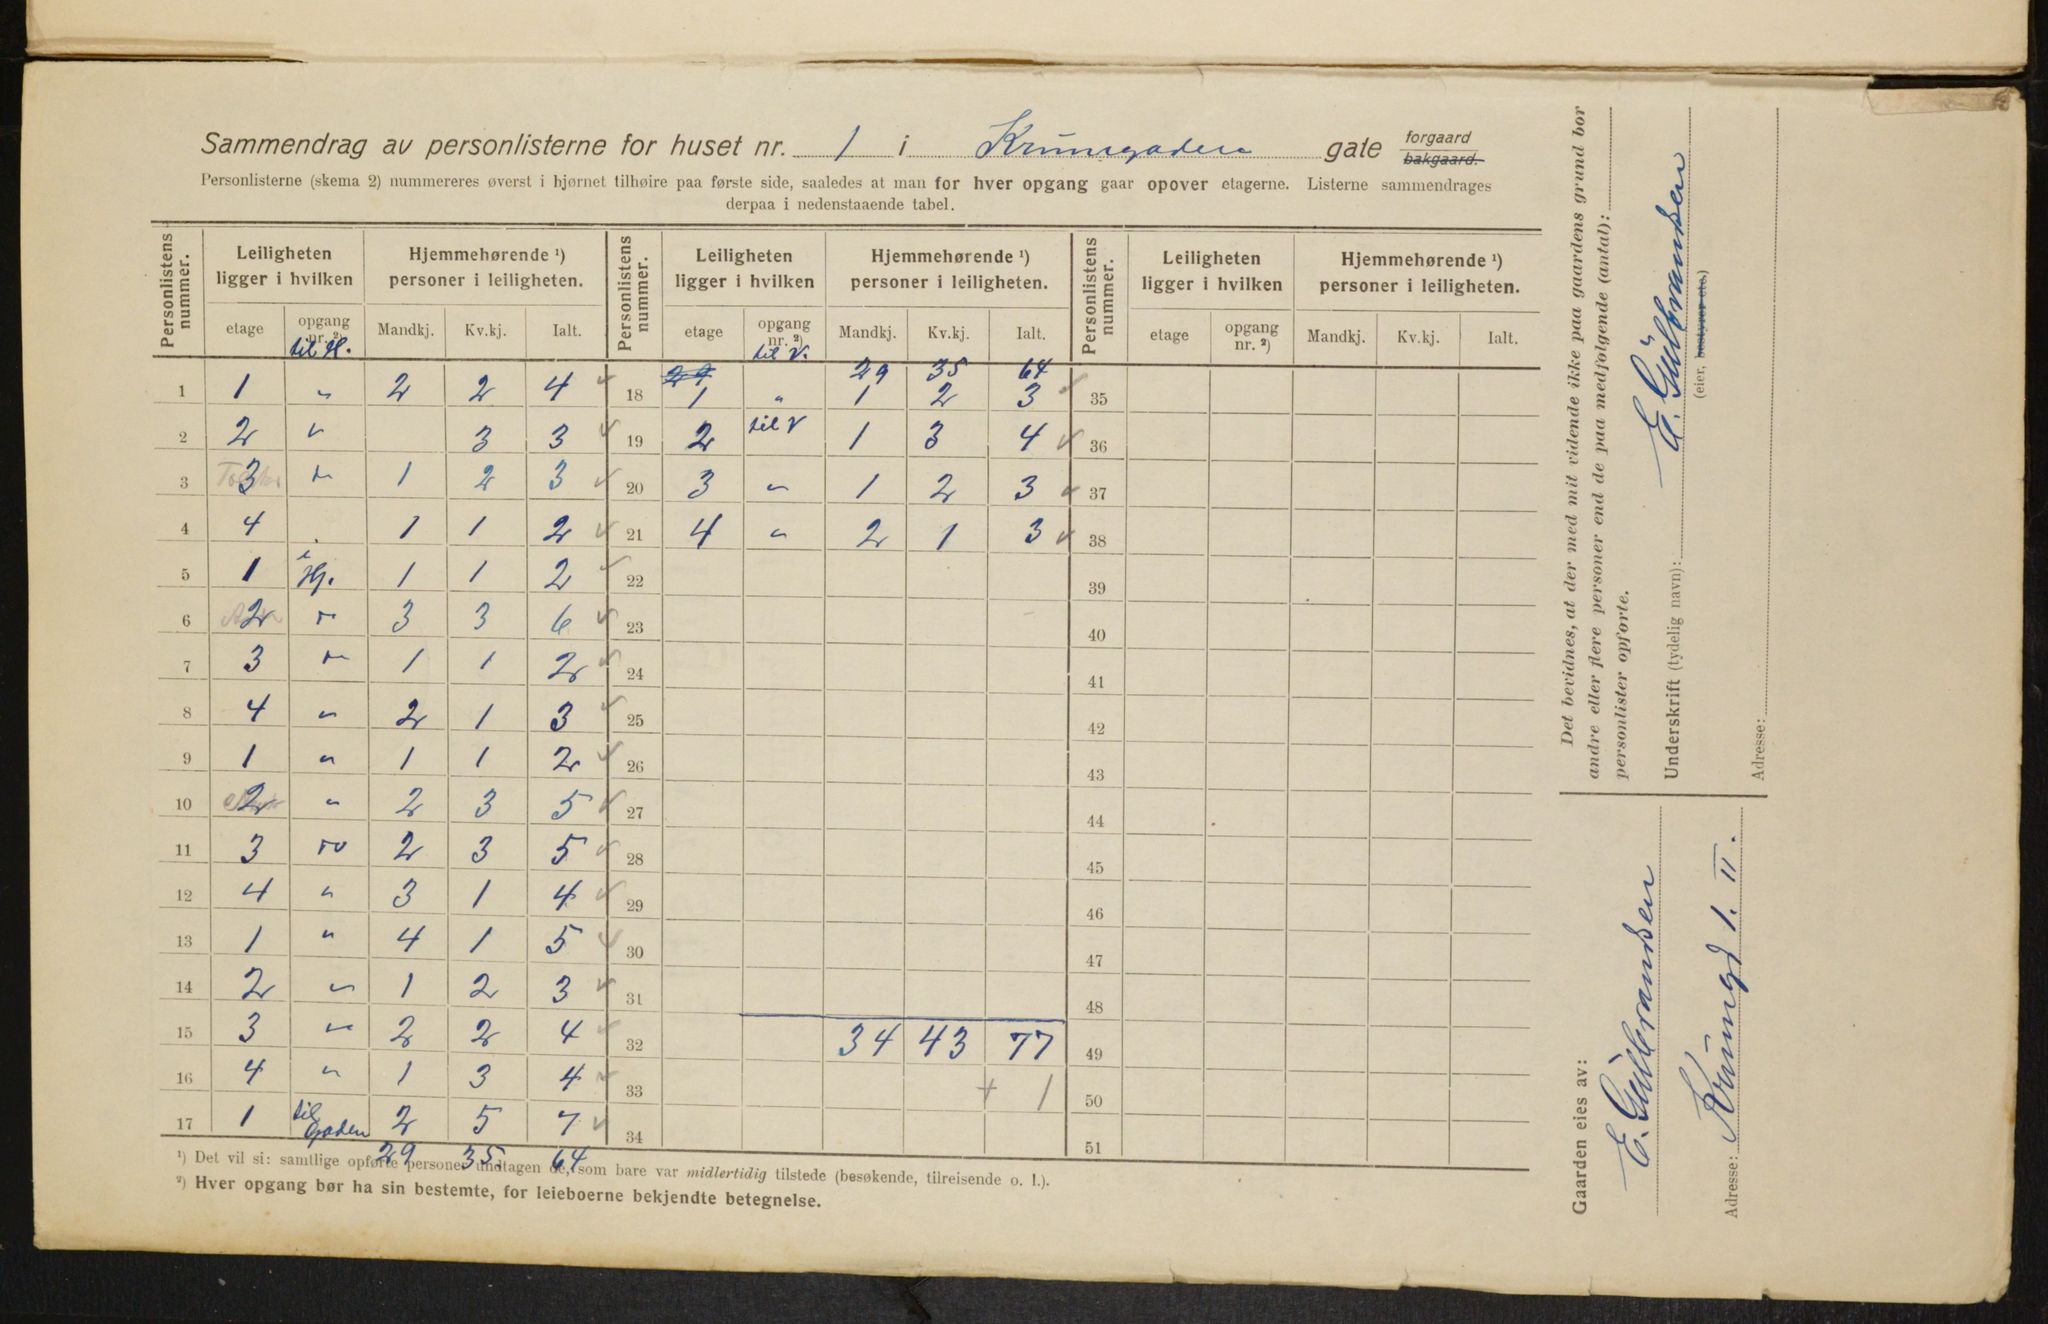 Sammendrag av personlisterne for huset nr. 1 i Krumgaden gate forgaard bakgaard.
Personlisterne (skema 2) nummereres øverst i hjørnet tilhøire paa første side, saaledes at man for hver opgang gaar opover etagerne. Listerne sammendrages
derpaa i nedenstaaende tabel.
Personlistens nummer. Leiligheten ligger i hvilken Hjemmehørende ¹) personer i leiligheten. Personlistens nummer. Leiligheten ligger i hvilken Hjemmehørende ¹) personer i leiligheten. Personlistens nummer. Leiligheten ligger i hvilken Hjemmehørende ¹) personer i leiligheten.
etage opgang nr. ²) Mandkj. Kv.kj. Ialt. etage opgang nr. ²) Mandkj. Kv.kj. Ialt. etage opgang nr. ²) Mandkj. Kv.kj. Ialt.
til H. til V.
29 29 35 64
1 1 " 2 2 4 18 1 " 1 2 3 35
2 2 " 3 3 19 2 til V 1 3 4 36
3 3 " 1 2 3 20 3 " 1 2 3 37
4 4 . 1 1 2 21 4 " 2 1 3 38
5 1 i Hj. 1 1 2 22 39
6 2 " 3 3 6 23 40
7 3 " 1 1 2 24 41
8 4 " 2 1 3 25 42
9 1 " 1 1 2 26 43
10 2 " 2 3 5 27 44
11 3 " 2 3 5 28 45
12 4 " 3 1 4 29 46
13 1 " 4 1 5 30 47
14 2 " 1 2 3 31 48
15 3 " 2 2 4 32 34 43 77 49
16 4 " 1 3 4 33 + 1 50
17 1 til Gaden 2 5 7 34 51
29 35 64
¹) Det vil si: samtlige opførte personer undtagen de, som bare var midlertidig tilstede (besøkende, tilreisende o. l.).
²) Hver opgang bør ha sin bestemte, for leieboerne bekjendte betegnelse.
Det bevidnes, at der med mit vidende ikke paa gaardens grund bor
andre eller flere personer end de paa medfølgende (antal):
personlister opførte.
Underskrift (tydelig navn): E. Gulbrandsen
(eier, bestyrer etc.)
Adresse:
Gaarden eies av: E. Gulbrandsen
Adresse: Krumgd 1. II.